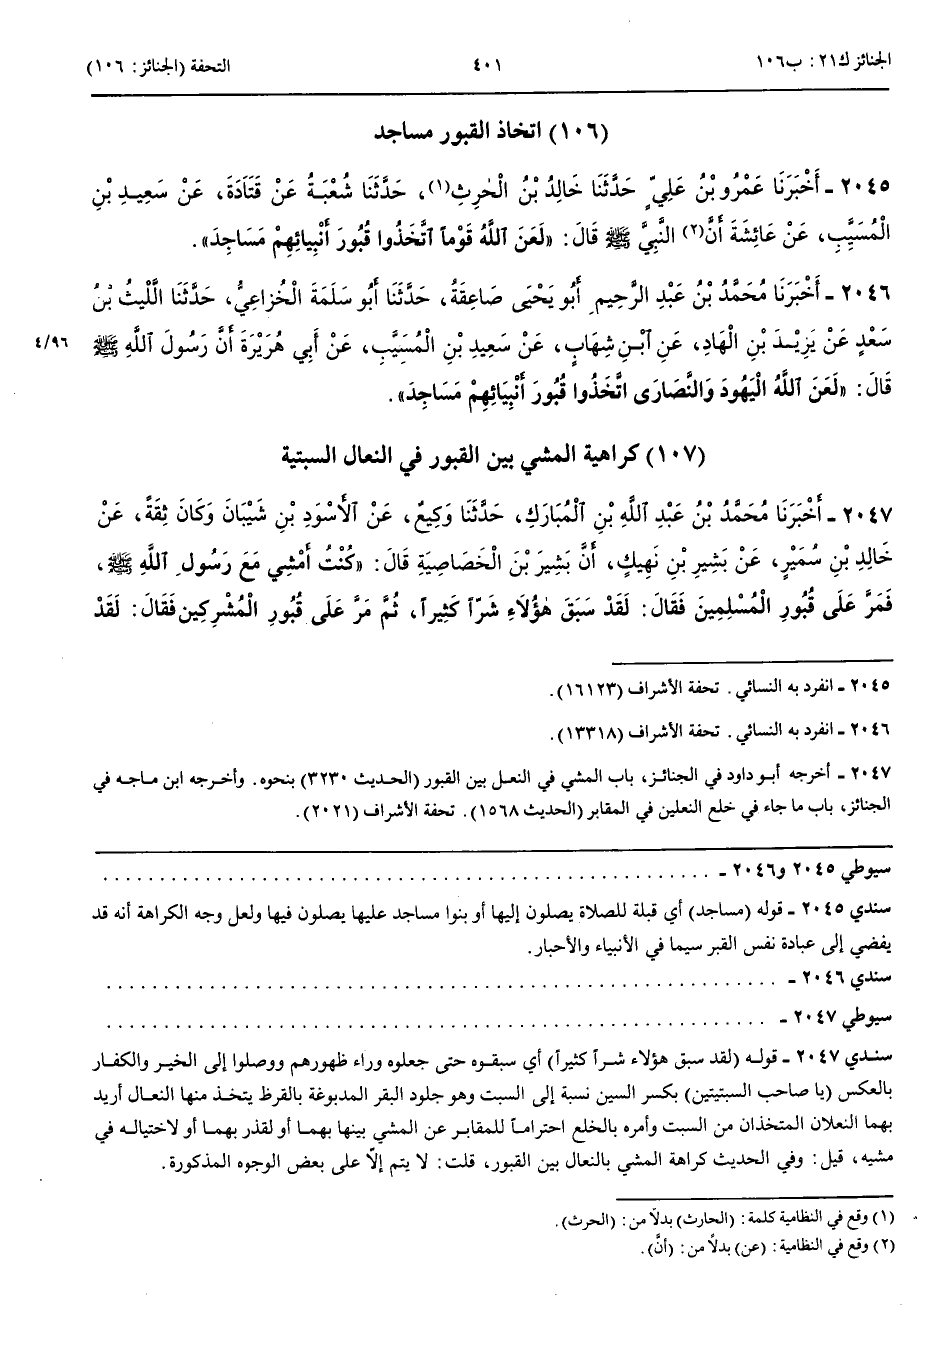 الجنائز ك٢١: ب١٠٦ ٤٠١ التحفة (الجنائز: ١٠٦)
(١٠٦) اتخاذ القبور مساجد
٢٠٤٥ ـ أَخْبَرَنَا عَمْرُو بْنُ عَلِيٍّ حَدَّثَنَا خَالِدُ بْنُ الْحٰرِثِ(١)، حَدَّثَنَا شُعْبَةُ عَنْ قَتَادَةَ، عَنْ سَعِيدِ بْنِ
الْمُسَيَّبِ، عَنْ عَائِشَةَ أَنَّ(٢) النَّبِيَّ ﷺ قَالَ: «لَعَنَ اللَّهُ قَوْماً اتَّخَذُوا قُبُورَ أَنْبِيَائِهِمْ مَسَاجِدَ».
٢٠٤٦ ـ أَخْبَرَنَا مُحَمَّدُ بْنُ عَبْدِ الرَّحِيمِ أَبُو يَحْيَى صَاعِقَةُ، حَدَّثَنَا أَبُو سَلَمَةَ الْخُزَاعِيُّ، حَدَّثَنَا اللَّيْثُ بْنُ
سَعْدٍ عَنْ يَزِيْدَ بْنِ الْهَادِ، عَنِ ابْنِ شِهَابٍ، عَنْ سَعِيدِ بْنِ الْمُسَيَّبِ، عَنْ أَبِي هُرَيْرَةَ أَنَّ رَسُولَ اللَّهِ ﷺ ٤/٩٦
قَالَ: «لَعَنَ اللَّهُ الْيَهُودَ وَالنَّصَارَى اتَّخَذُوا قُبُورَ أَنْبِيَائِهِمْ مَسَاجِدَ».
(١٠٧) كراهية المشي بين القبور في النعال السبتية
٢٠٤٧ ـ أَخْبَرَنَا مُحَمَّدُ بْنُ عَبْدِ اللَّهِ بْنِ الْمُبَارَكِ، حَدَّثَنَا وَكِيعٌ، عَنْ الْأَسْوَدِ بْنِ شَيْبَانَ وَكَانَ ثِقَةً، عَنْ
خَالِدِ بْنِ سُمَيْرٍ، عَنْ بَشِيرِ بْنِ نَهِيكٍ، أَنَّ بَشِيرَ بْنَ الْخَصَاصِيَةِ قَالَ: «كُنْتُ أَمْشِي مَعَ رَسُولِ اللَّهِ ﷺ،
فَمَرَّ عَلَى قُبُورِ الْمُسْلِمِينَ فَقَالَ: لَقَدْ سَبَقَ هٰؤُلَاءِ شَرّاً كَثِيراً، ثُمَّ مَرَّ عَلَى قُبُورِ الْمُشْرِكِينَ فَقَالَ: لَقَدْ
٢٠٤٥ ـ انفرد به النسائي. تحفة الأشراف (١٦١٢٣).
٢٠٤٦ ـ انفرد به النسائي. تحفة الأشراف (١٣٣١٨).
٢٠٤٧ ـ أخرجه أبو داود في الجنائز، باب المشي في النعل بين القبور (الحديث ٣٢٣٠) بنحوه. وأخرجه ابن ماجه في
الجنائز، باب ما جاء في خلع النعلين في المقابر (الحديث ١٥٦٨). تحفة الأشراف (٢٠٢١).
سيوطي ٢٠٤٥ و٢٠٤٦ ـ ..............................................
سندي ٢٠٤٥ ـ قوله (مساجد) أي قبلة للصلاة يصلون إليها أو بنوا مساجد عليها يصلون فيها ولعل وجه الكراهة أنه قد
يفضي إلى عبادة نفس القبر سيما في الأنبياء والأحبار.
سندي ٢٠٤٦ ـ ..............................................
سيوطي ٢٠٤٧ ـ ..............................................
سندي ٢٠٤٧ ـ قوله (لقد سبق هؤلاء شراً كثيراً) أي سبقوه حتى جعلوه وراء ظهورهم ووصلوا إلى الخير والكفار
بالعكس (يا صاحب السبتيتين) بكسر السين نسبة إلى السبت وهو جلود البقر المدبوغة بالقرظ يتخذ منها النعال أريد
بهما النعلان المتخذان من السبت وأمره بالخلع احتراماً للمقابر عن المشي بينها بهما أو لقذر بهما أو لاختياله في
مشيه، قيل: وفي الحديث كراهة المشي بالنعال بين القبور، قلت: لا يتم إلاّ على بعض الوجوه المذكورة.
(١) وقع في النظامية كلمة: (الحارث) بدلًا من: (الحرث).
(٢) وقع في النظامية: (عن) بدلًا من: (أنَّ).